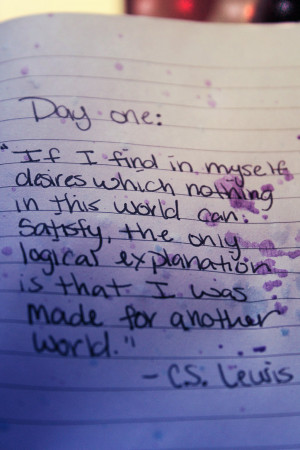 Day one:
"If I find in myself
desires which nothing
in this world can
satisfy, the only
logical explanation
is that I was
made for another
world."
- C.S. Lewis